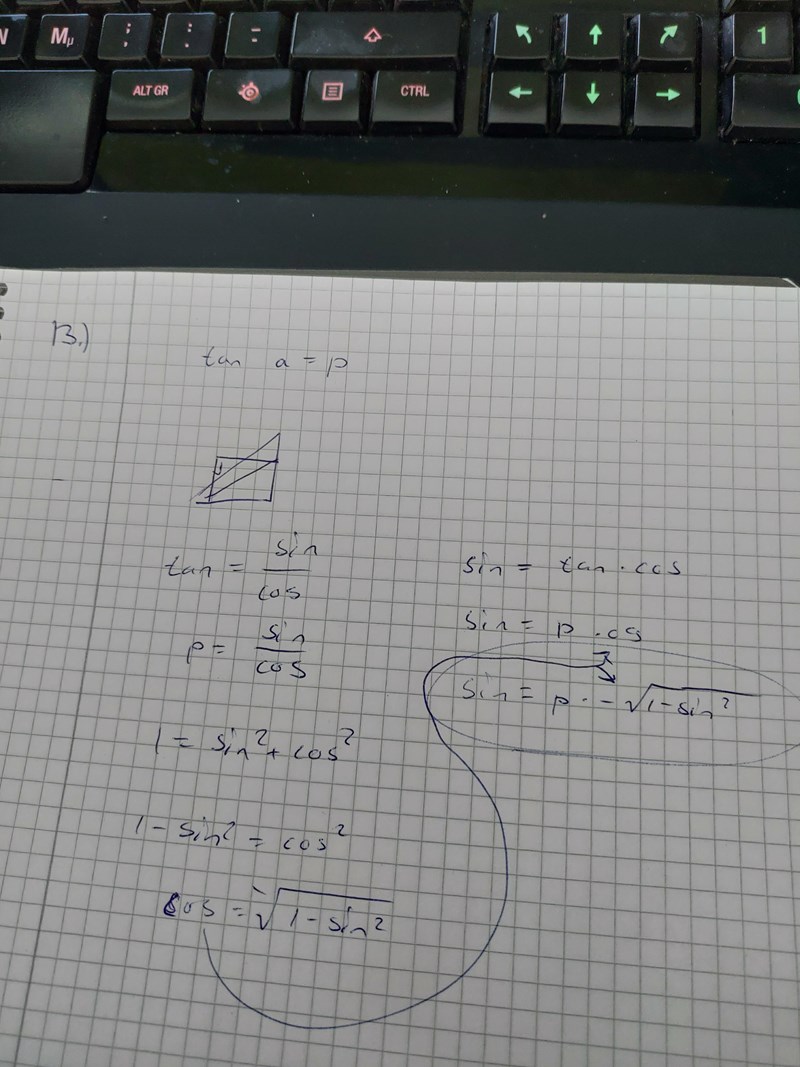 N Mµ ; : - 
ALT GR CTRL
1
13.)
tan a = p
tan = sin/cos
p = sin/cos
1 = sin² + cos²
1 - sin² = cos²
cos = -√(1 - sin²)
sin = tan · cos
sin = p · cos
sin = p · -√(1 - sin²)